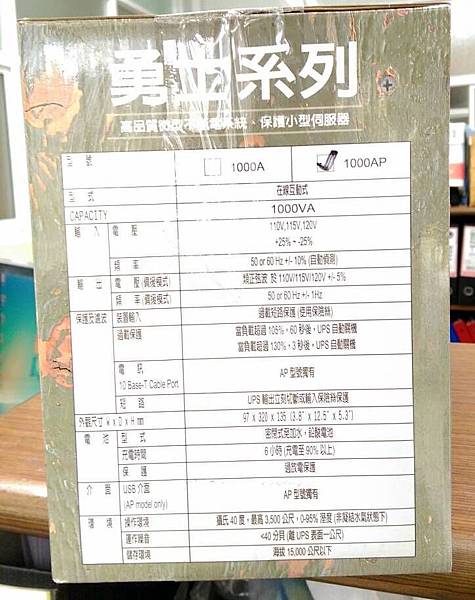 勇士系列
高品質微型不斷電系統、保護小型伺服器
型號 1000A 1000AP
型式 在線互動式
CAPACITY 1000VA
輸入 電壓 110V,115V,120V
+25% ~ -25%
頻率 50 or 60 Hz +/- 10% (自動偵測)
輸出 電壓(價援模式) 類正弦波 於 110V/115V/120V +/- 5%
頻率(價援模式) 50 or 60 Hz +/- 1Hz
保護及濾波 裝置輸入 過載短路保護 (使用保險絲)
過載保護 當負載超過 105%，60 秒後，UPS 自動關機
當負載超過 130%，3 秒後，UPS 自動關機
電訊 AP 型號獨有
10 Base-T Cable Port
短路 UPS 輸出立刻切斷或輸入保險絲保護
外觀尺寸 W x D x H mm 97 x 320 x 135 (3.8" x 12.5" x 5.3")
電池 型式 密閉式至加水，鉛酸電池
充電時間 6 小時 (充電至 90% 以上)
保護 過放電保護
介面 USB 介面 AP 型號獨有
(AP model only)
環境 操作環境 攝氏 40 度，最高 3,500 公尺，0-95% 溼度 (非凝結水氣狀態下)
運作噪音 <40 分貝 (離 UPS 表面一公尺)
儲存環境 海拔 15,000 公尺以下